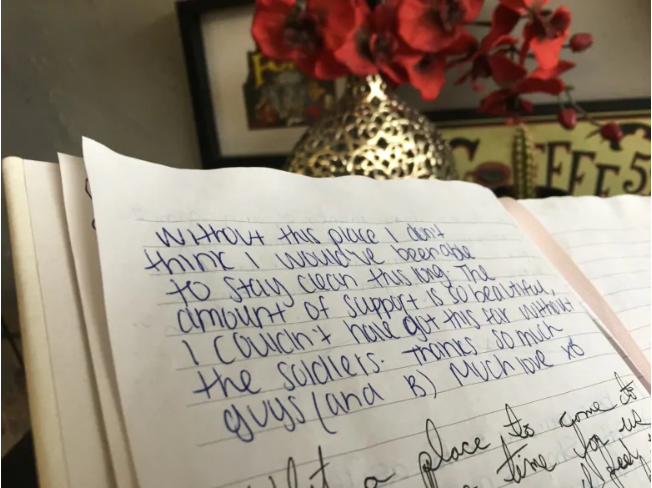 Without this place I don't
think I would've been able
to stay clean this long. The
amount of support is so beautiful,
I couldn't have got this far without
the soldiers. Thanks so much
guys (and B) Much love xo
a place to come to
time for us